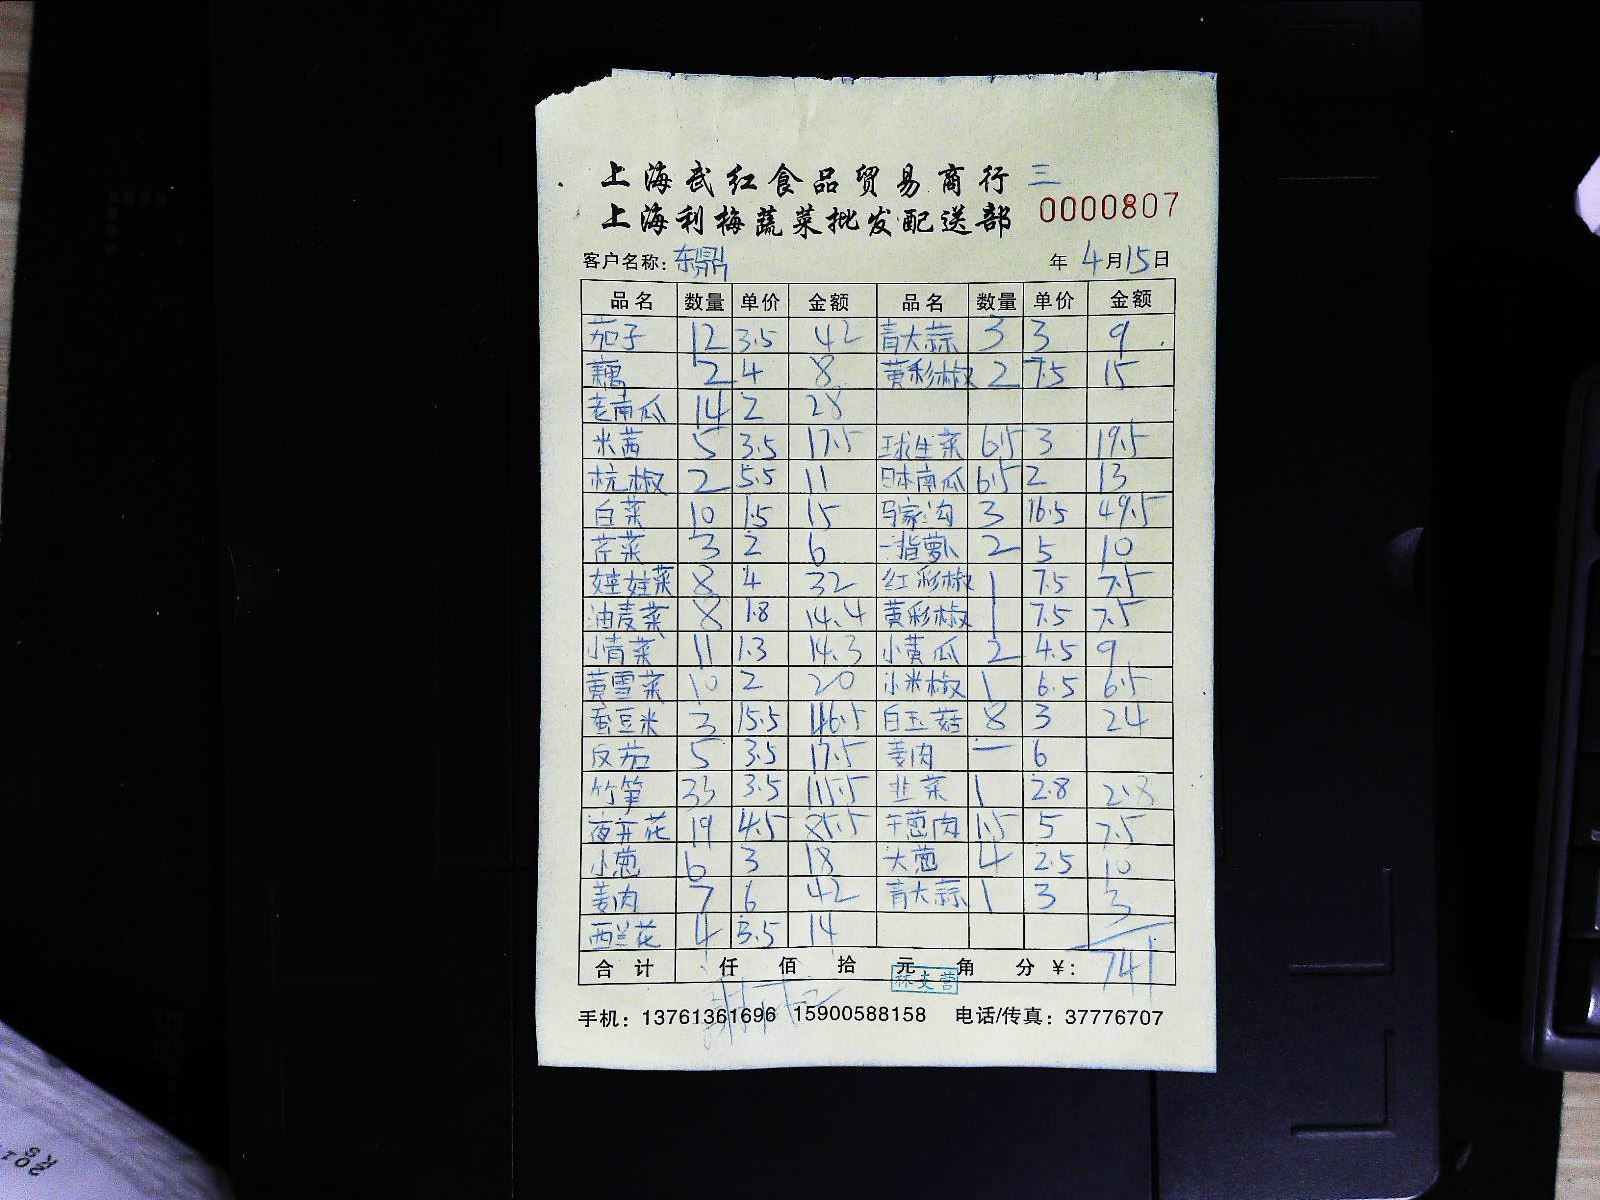 上海武红食品贸易商行 三
上海利梅蔬菜批发配送部 0000807
客户名称：东鼎 年 4月15日
品名 数量 单价 金额 品名 数量 单价 金额
茄子 12 3.5 42 青大蒜 3 3 9
藕 2 4 8 黄彩椒 2 7.5 15
老南瓜 14 2 28
米茜 5 3.5 17.5 球生菜 6.5 3 19.5
杭椒 2 5.5 11 日本南瓜 6.5 2 13
白菜 10 1.5 15 马家沟 3 16.5 49.5
芹菜 3 2 6 一指萝卜 2 5 10
娃娃菜 8 4 32 红彩椒 1 7.5 7.5
油麦菜 8 1.8 14.4 黄彩椒 1 7.5 7.5
小青菜 11 1.3 14.3 小黄瓜 2 4.5 9
黄雪菜 10 2 20 小米椒 1 6.5 6.5
蚕豆米 3 15.5 46.5 白玉菇 8 3 24
反茄 5 3.5 17.5 姜肉 一 6
竹笋 33 3.5 115.5 韭菜 1 2.8 2.8
夜开花 19 4.5 85.5 干葱肉 1.5 5 7.5
小葱 6 3 18 大葱 4 2.5 10
姜肉 7 6 42 青大蒜 1 3 3
西兰花 4 3.5 14
合计 仟 佰 拾 元 角 分 ¥: 741
林支营
手机：13761361696 15900588158 电话/传真：37776707